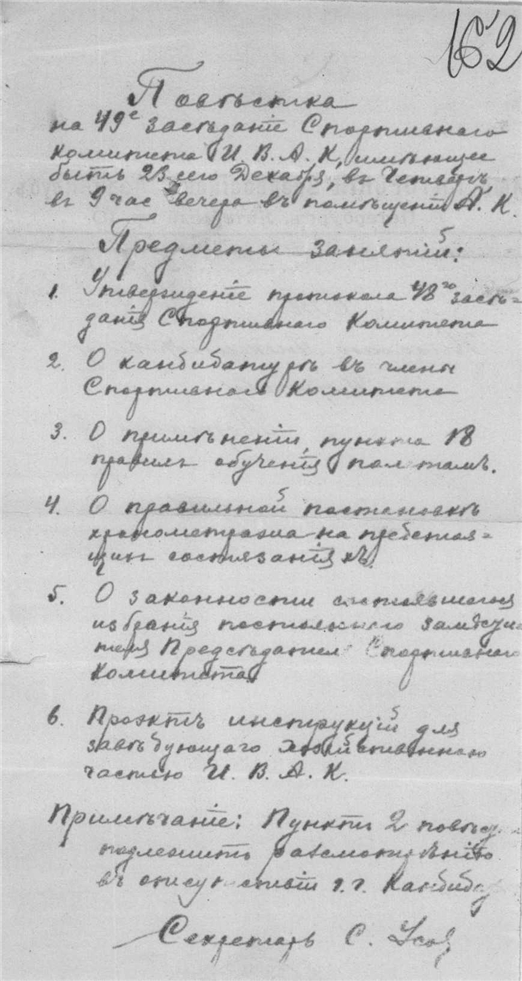 162
Повѣстка
на 49е засѣданіе Спортивнаго
Комитета И. В. А. К, имѣющее
быть 23 сего Декабря, въ Четвергъ,
въ 9 час вечера въ помѣщеніи А. К.
Предметы занятій:
1. Утвержденіе протокола 48го засѣ=
данія Спортивнаго Комитета
2. О кандидатурѣ въ члены
Спортивнаго Комитета
3. О примѣненіи, пункта 18
правилъ обученія полетамъ.
4. О правильной постановкѣ
хронометража на предстоя=
щихъ состязаніяхъ.
5. О законности состоявшагося
избранія постояннаго замѣсти
теля Предсѣдателя Спортивнаго
Комитета
6. Проэктъ инструкцій для
завѣдующаго хозяйственною
частью И. В. А. К.
Примѣчаніе: Пунктъ 2 повѣс
подлежитъ разсмотрѣнію
въ отсутствіи г. г. Кандида
Секретарь С.